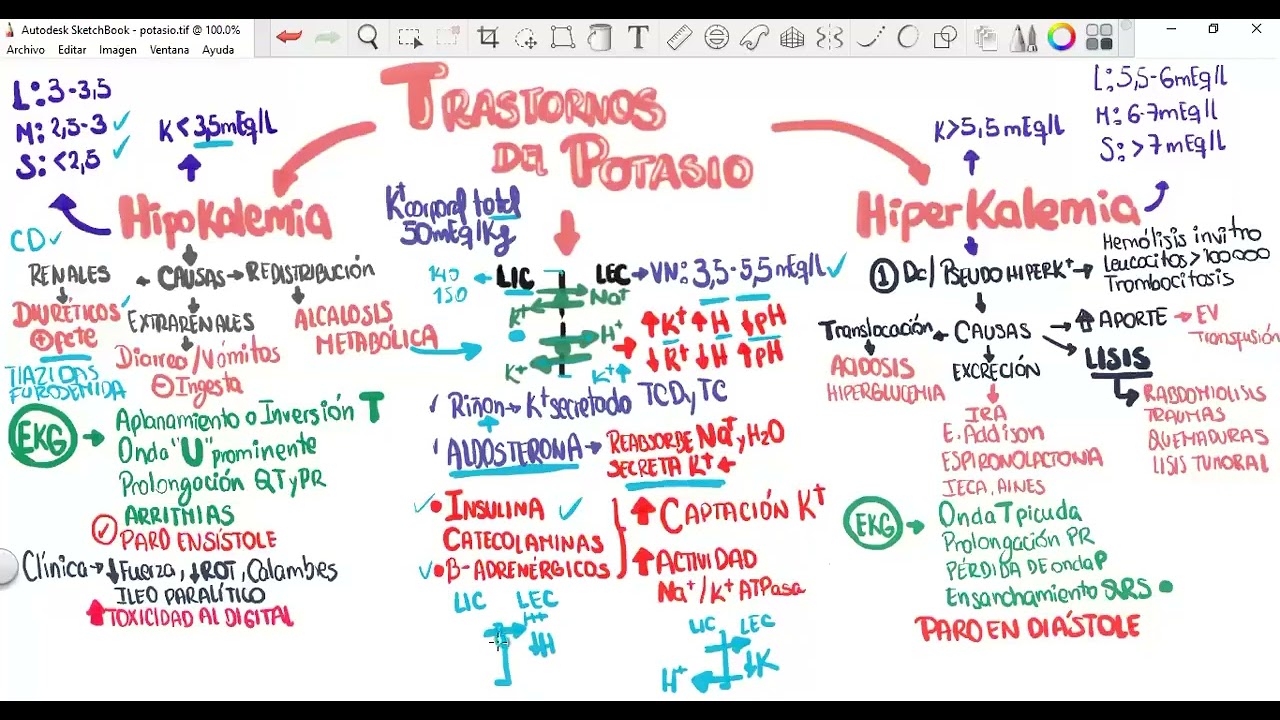 Autodesk SketchBook - potasio.tif @ 100.0%
Archivo Editar Imagen Ventana Ayuda
TRASTORNOS
DEL POTASIO
L: 3-3,5
M: 2,5-3 ✓
S: <2,5 ✓
K < 3,5mEq/L
HipoKalemia
CD ✓
RENALES ← CAUSAS → REDISTRIBUCIÓN
DIURÉTICOS ✓
⊕ fcte
TIAZIDAS
FUROSEMIDA
EXTRARENALES
Diarrea/Vómitos
⊖ Ingesta
ALCALOSIS
METABÓLICA
EKG → Aplanamiento o Inversión T
Onda "U" prominente
Prolongación QT y PR
ARRITMIAS
✓ PARO EN SÍSTOLE
Clínica → ↓Fuerza, ↓ROT, Calambres
ILEO PARALÍTICO
↑ TOXICIDAD AL DIGITAL
K+ corporal total
50mEq/Kg
140
150
← LIC
LEC → VN: 3,5-5,5mEq/L ✓
Na+
K+
H+
K+
K+ ↑
↑K+ ↑H ↓pH
↓K+ ↓H ↑pH
✓ Riñon → K+ secretado TCD y TC
✓ ALDOSTERONA → REABSORBE Na+ y H2O
SECRETA K+ ←
✓ • INSULINA ✓
CATECOLAMINAS
✓ • β-ADRENÉRGICOS
↑ CAPTACIÓN K+
↑ ACTIVIDAD
Na+/K+ ATPasa
LIC LEC
H+
↓H
LIC LEC
↓K
H+
L: 5,5-6mEq/L
M: 6-7mEq/L
S: >7mEq/L
K>5,5mEq/L
HiperKalemia
① Dc/ PSEUDOHIPERK+ →
Hemólisis invitro
Leucocitos >100000
Trombocitosis
Translocación ← CAUSAS → ↑ APORTE → EV
Transfusión
ACIDOSIS
HIPERGLUCEMIA
EXCRECIÓN
IRA
E. Addison
ESPIRONOLACTONA
IECA, AINES
LISIS
RABDOMIOLISIS
TRAUMAS
QUEMADURAS
LISIS TUMORAL
EKG → Onda T picuda
Prolongación PR
PÉRDIDA DE onda P
Ensanchamiento QRS •
PARO EN DIÁSTOLE